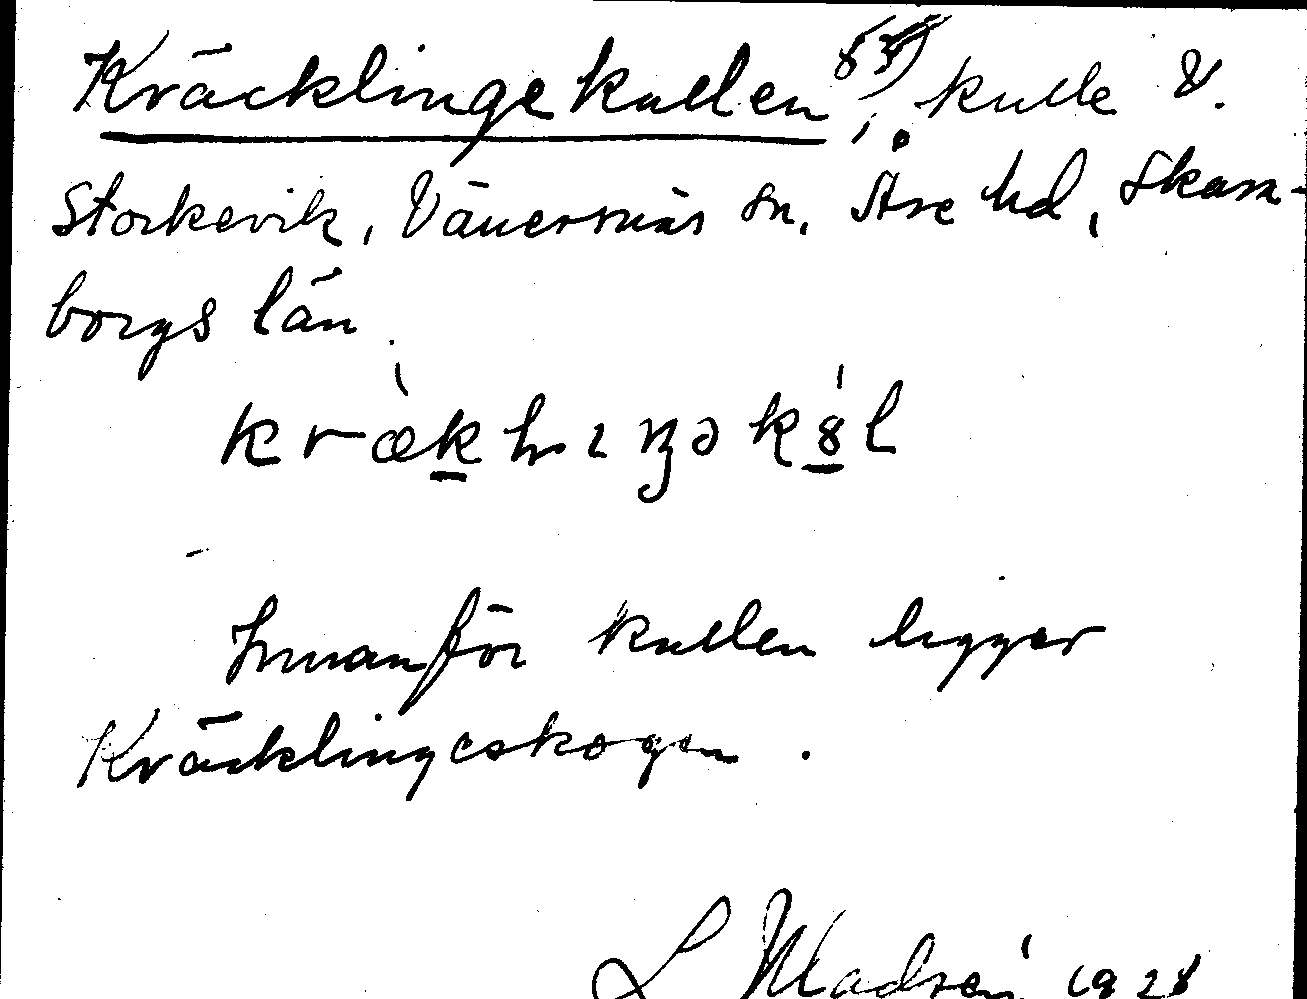 Kräcklingekullen, kulle V.
Storkevik, Vänersnäs sn. Åse hd, Skara-
borgs län.
Innanför kullen ligger
Kräcklingeskogen.
L 1928